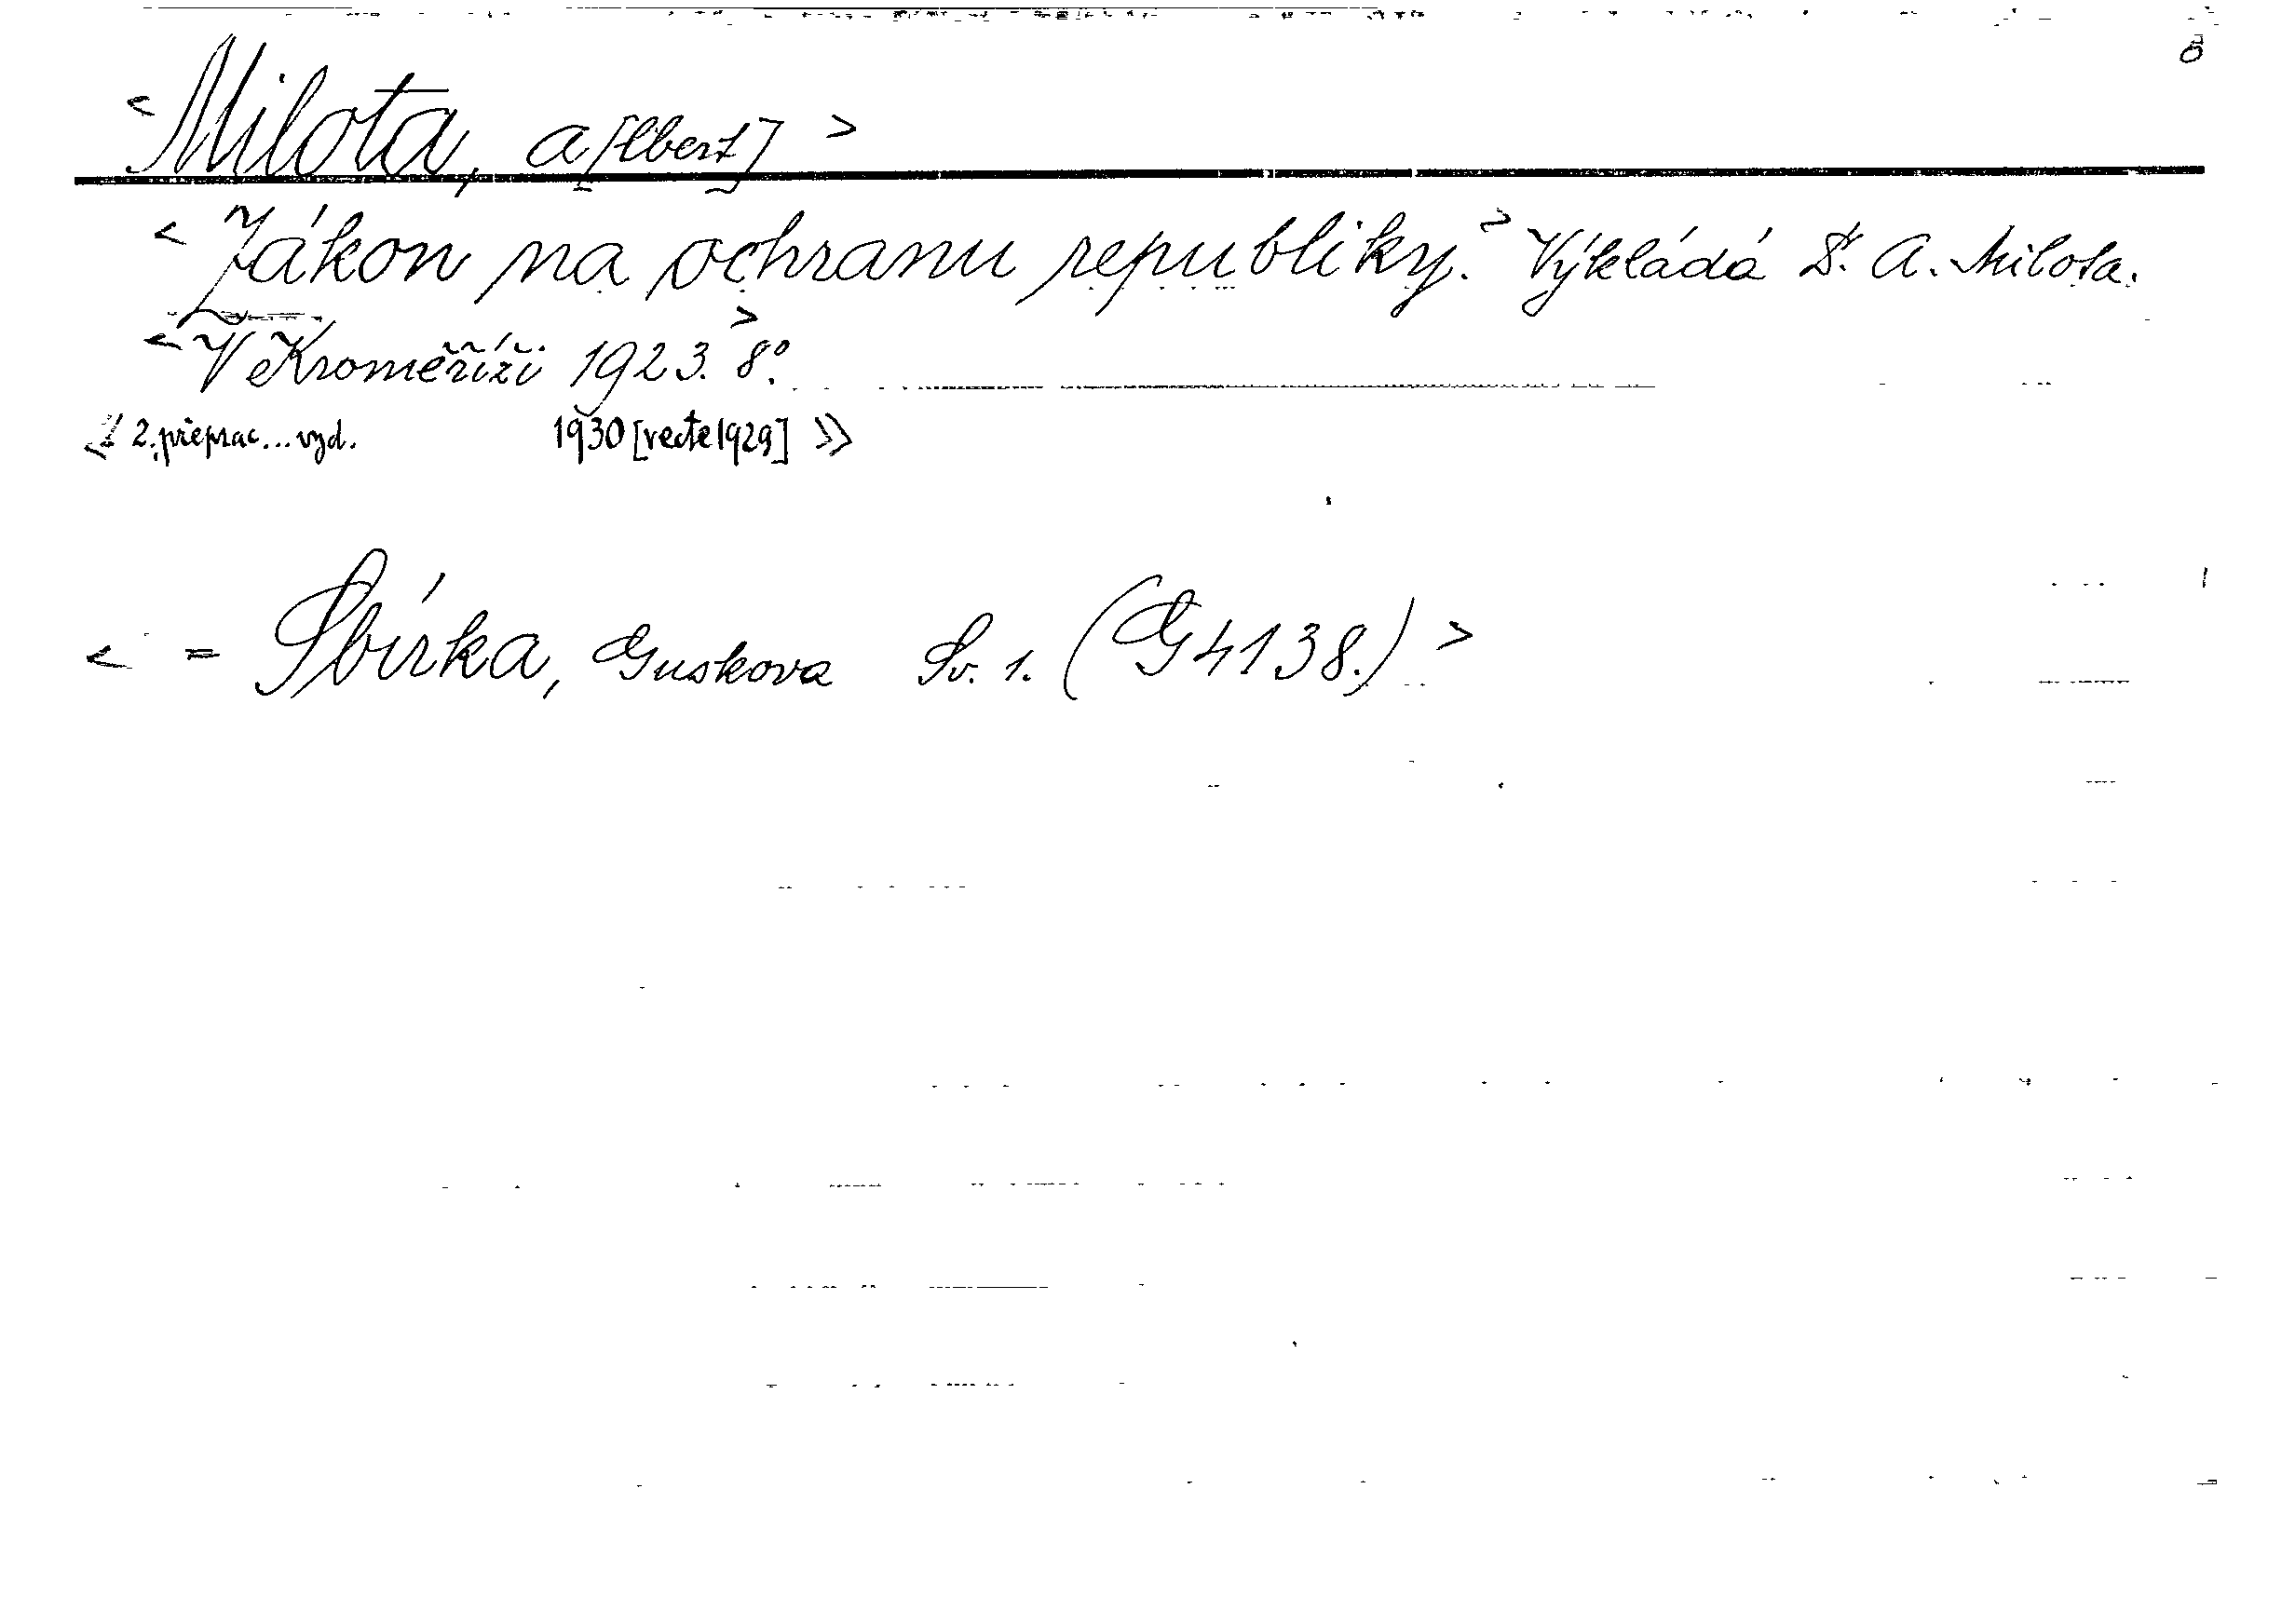 8
<Milota, A[lbert]>
<Zákon na ochranu republiky.> Výkládá Dr. A. Milota.
<V Kroměříži 1923.> 8°.
≪ 2. přeprac... vyd. 1930 [recte 1929] ≫
< = Sbírka, Guskova Sv. 1. (G 4138.) >